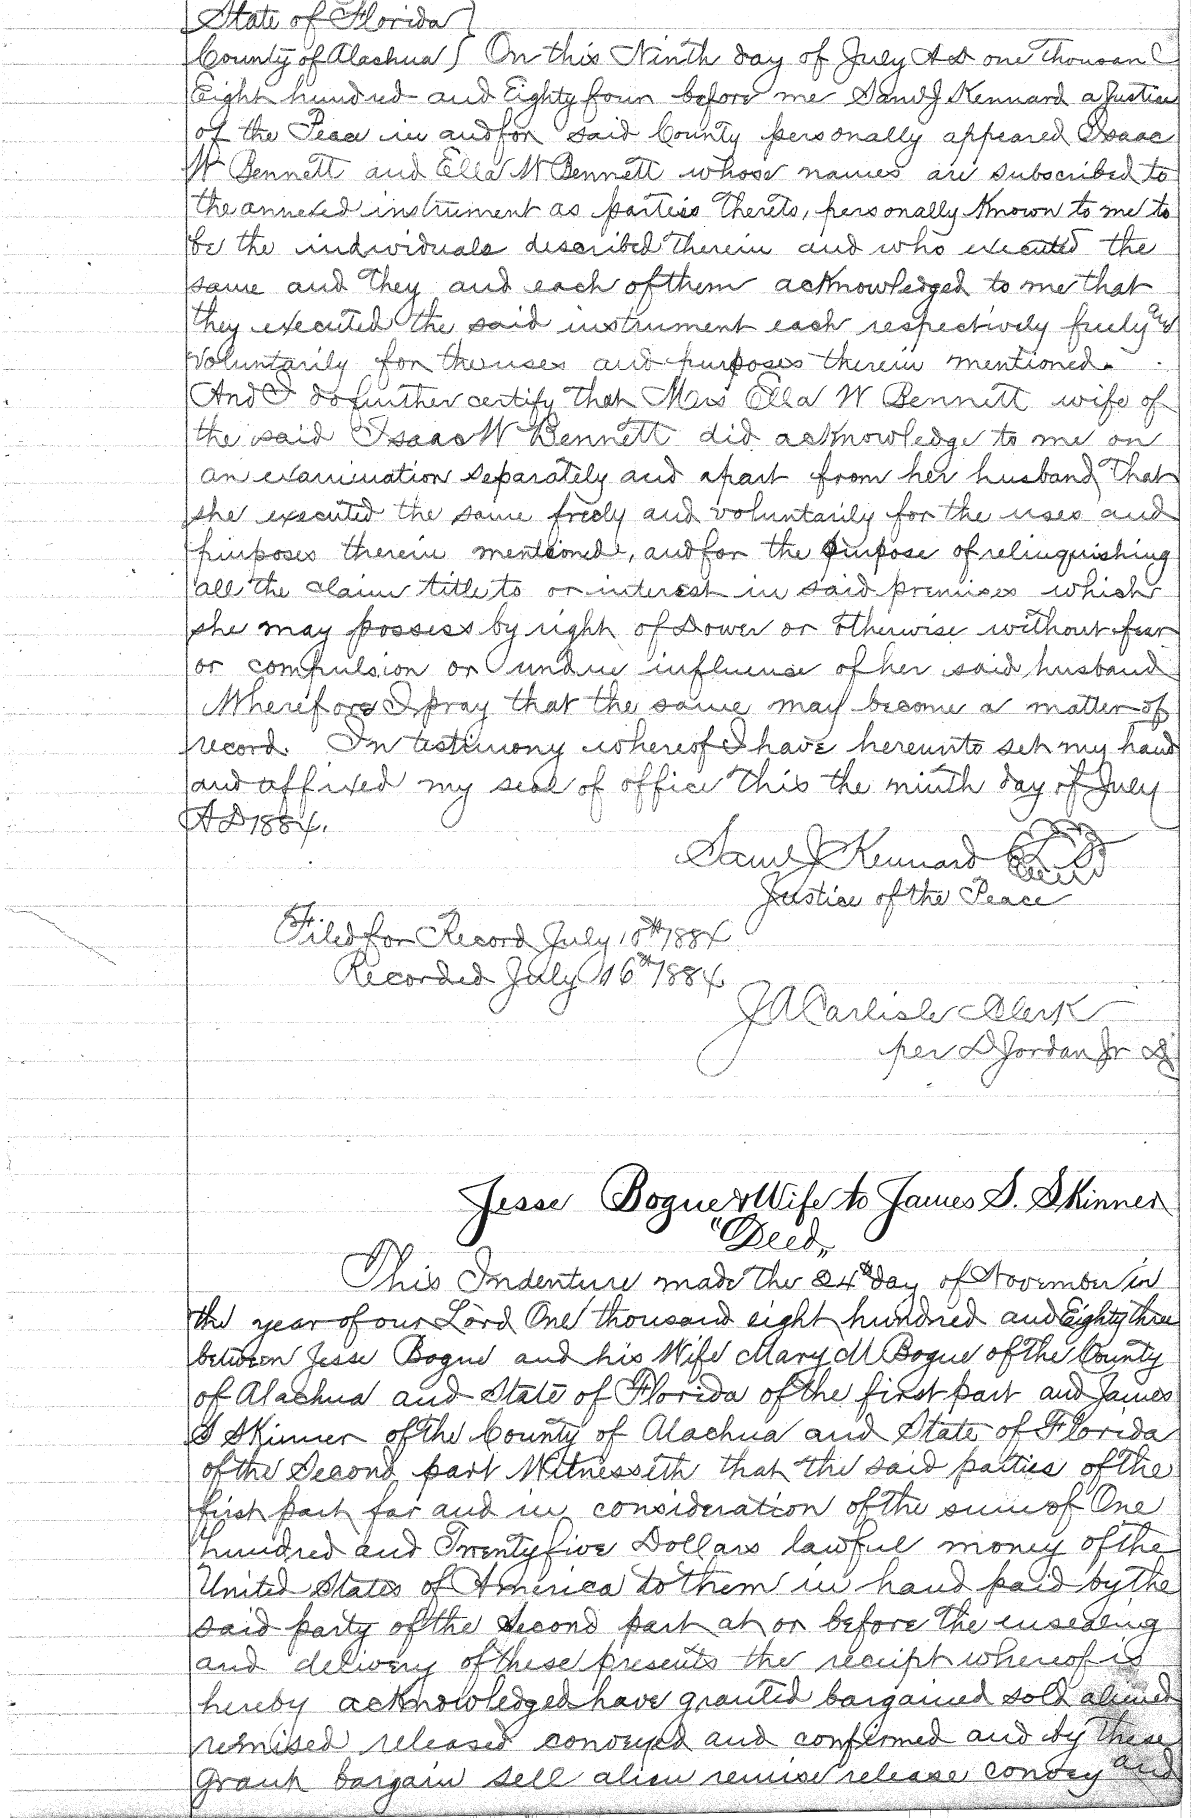 State of Florida }
County of Alachua } On this Ninth day of July AD one Thousand
Eight hundred and Eighty four before me Saml J Kennard a Justice
of the Peace in and for said County personally appeared Isaac
W Bennett and Ella W Bennett whose names are subscribed to
the annexed instrument as parties thereto, personally Known to me to
be the individuals described therein and who executed the
same and they and each of them acknowledged to me that
they executed the said instrument each respectively freely and
voluntarily for the uses and purposes therein mentioned.
And I do further certify that Mrs Ella W Bennett wife of
the said Isaac W Bennett did acknowledge to me on
an examination separately and apart from her husband that
she executed the same freely and voluntarily for the uses and
purposes therein mentioned, and for the purpose of relinquishing
all the claim title to or interest in said premises which
she may possess by right of Dower or otherwise without fear
or compulsion or undue influence of her said husband
Wherefore I pray that the same may become a matter of
record. In testimony whereof I have hereunto set my hand
and affixed my seal of office this the ninth day of July
AD 1884.
Saml J Kennard L S
Justice of the Peace
Filed for Record July 10th 1884
Recorded July 16th 1884
J A Carlisle Clerk
per D Jordan Jr
Jesse Bogue & Wife to James S. Skinner
"Deed"
This Indenture made the 24th day of November in
the year of our Lord One thousand eight hundred and Eighty three
between Jesse Bogue and his Wife Mary M Bogue of the County
of Alachua and State of Florida of the first part and James
S Skinner of the County of Alachua and State of Florida
of the Second part Witnesseth that the said parties of the
first part for and in consideration of the sum of One
hundred and Twenty five Dollars lawful money of the
United States of America to them in hand paid by the
said party of the Second part at or before the ensealing
and delivery of these presents the receipt whereof is
hereby acknowledged have granted bargained sold aliened
remised released conveyed and confirmed and by these
grant bargain sell alien remise release convey and